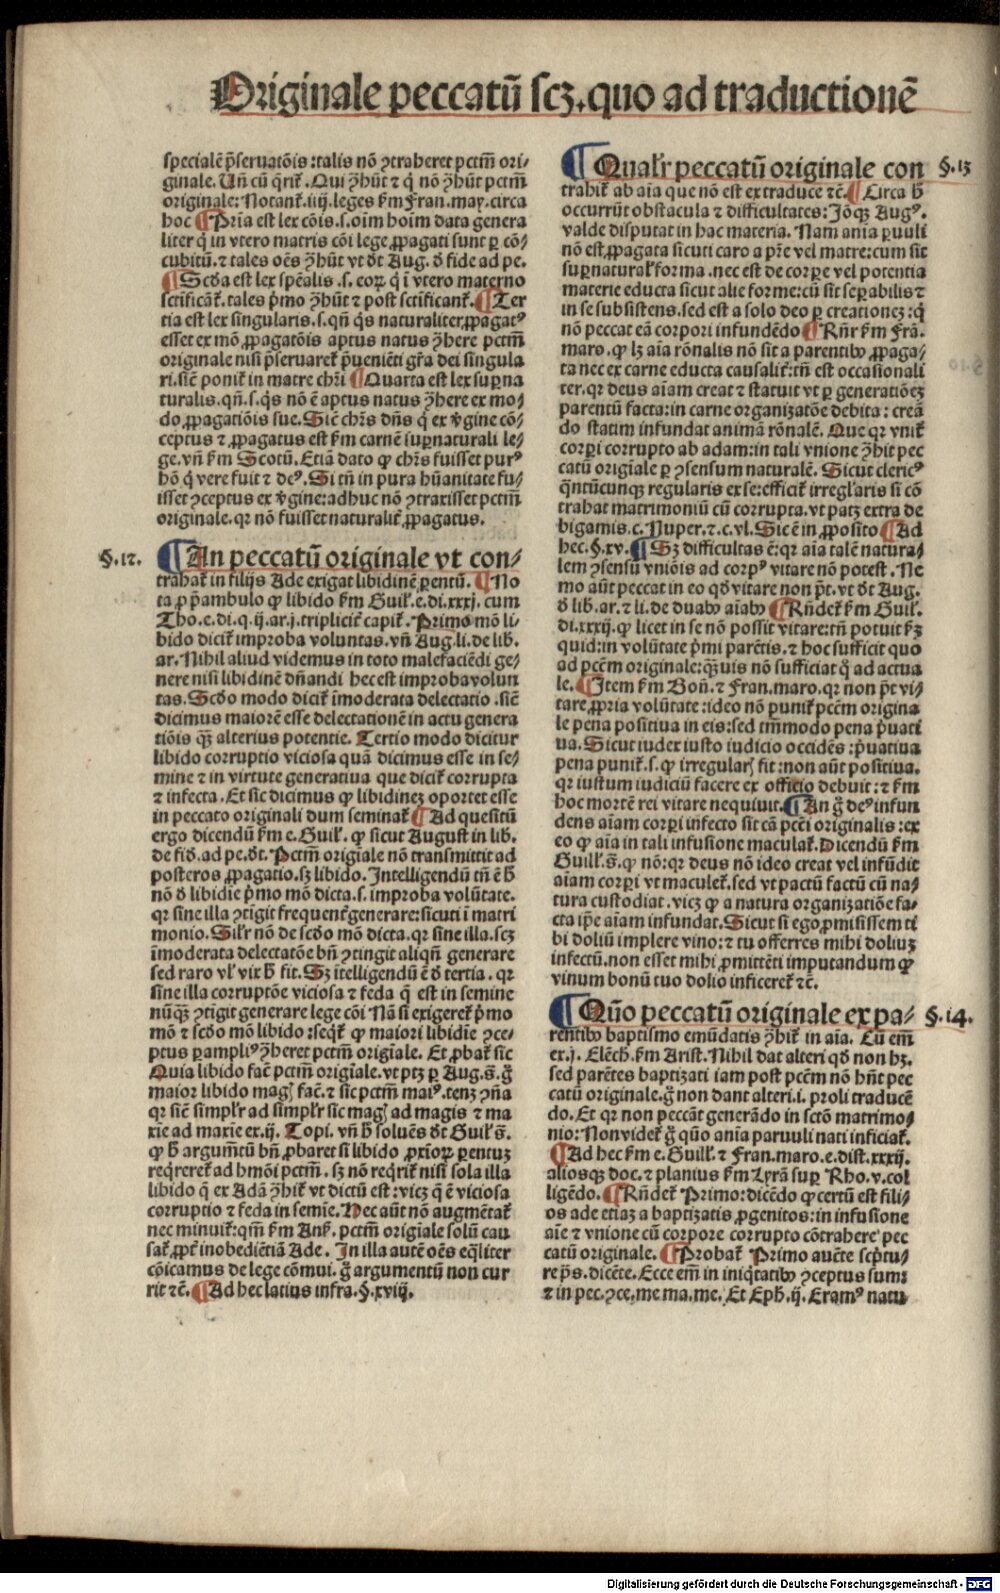 Originale peccatū scꝫ. quo ad traductionē
specialē p̄seruatōis: talis nō ꝯtraheret pctm̄ ori-
ginale. Uñ cū q̄rit᷑. Qui ꝯ̄hūt ⁊ q̇ nō ꝯ̄hūt pctm̄
originale: Notant᷑. iiij. leges ẜm Fran. may. circa
hoc ¶ Pria est lex cōis. s. oim̄ hoīm data genera
liter q̇ in vtero matris cōi lege ꝓpagati sunt ꝑ cō-
cubitū. ⁊ tales oēs ꝯ̄hūt vt d̄t Aug. d̄ fide ad pe.
¶ Scd̄a est lex spēalis. s. eoꝝ q̇ ī vtero materno
sctificāt᷑. tales p̄mo ꝯ̄hūt ⁊ post sctificant᷑. ¶ Ter
tia est lex singularis. s. qn̄ q̇s naturaliter ꝓpagatꝰ
esset ex mō ꝓpagatōis aptus natus ꝯ̄here pctm̄
originale nisi p̄seruaret᷑ p̄ueniēti gr̄a dei singula
ri. sic̄ ponit᷑ in matre chri ¶ Quarta est lex suꝑna
turalis. qn̄. s. q̇s nō ē aptus natus ꝯ̄here ex mo-
do ꝓpagatiōis sue. Sic̄ chr̄s dn̄s q̇ ex v̄gine cō-
ceptus ⁊ ꝓpagatus est ẜm carnē suꝑnaturali le-
ge. vn̄ ẜm Scotū. Etiā dato ꝙ chr̄s fuisset purꝰ
hō q̇ vere fuit ⁊ deꝰ. Si tn̄ in pura hūanitate fu-
isset ꝯceptus ex v̄gine: adhuc nō ꝯtraxisset pctm̄
originale. qꝛ nō fuisset naturalit᷑ ꝓpagatus.
§. 12. ¶ An peccatū originale vt con-
trahat᷑ in filijs Ade exigat libidinē ꝑentū. ¶ No
ta ꝓ p̄ambulo ꝙ libido ẜm Guil̄. e. di. xxxj. cum
Tho. e. di. q. ij. ar. j. triplicit᷑ capit᷑. Primo mō li-
bido dicit᷑ improba voluntas. vn̄ Aug. li. de lib.
ar. Nihil aliud videmus in toto malefaciēdi ge-
nere nisi libidinē dn̄andi hec est improba volun
tas. Scd̄o modo dicit᷑ īmoderata delectatio. sic̄
dicimus maiorē esse delectationē in actu genera
tiōis qꝫ̄ alterius potentie. Tertio modo dicitur
libido corruptio viciosa quā dicimus esse in se-
mine ⁊ in virtute generatiua que dicit᷑ corrupta
⁊ infecta. Et sic dicimus ꝙ libidinez oportet esse
in peccato originali dum seminat᷑ ¶ Ad quesitū
ergo dicendū ẜm e. Guil̄. ꝙ sicut August. in lib.
de fid. ad pe. d̄t. Pctm̄ origīale nō transmittit ad
posteros ꝓpagatio. sꝫ libido. Intelligendū tn̄ ē h̄
nō d̄ libidie p̄mo mō dicta. s. improba volūtate.
qꝛ sine illa ꝯtīgit frequent᷑ generare: sicuti ī matri
monio. Sil̄r nō de scd̄o mō dicta. qꝛ sine illa. scꝫ
īmoderata delectatōe bn̄ ꝯtingit aliqn̄ generare
sed raro vl̄ vix h̄ fit. Sꝫ ītelligendū ē d̄ tertia. qꝛ
sine illa corruptōe viciosa ⁊ feda q̄ est in semine
nūqꝫ̄ ꝯtigit generare lege cōi Nā si exigeret᷑ p̄mo
mō ⁊ scd̄o mō libido: seq̄t᷑ ꝙ maiori libidie ꝯce-
ptus ꝑ ampliꝰ ꝯ̄heret pctm̄ origīale. Et ꝓbat᷑ sic
Quia libido fac̄ pctm̄ origīale. vt ptꝫ ꝑ Aug. s̄. g̊
maior libido maḡ fac̄. ⁊ sic pctm̄ maiꝰ. tenꝫ ꝯn̄a
qꝛ sic̄ simpl̄r ad simpl̄r sic maḡ ad magis ⁊ ma
xīe ad maxīe ex. ij. Topi. vn̄ h̄ soluēs d̄t Guil̄ s̄.
ꝙ h̄ argum̄tū bn̄ ꝓbaret si libido ꝓxioꝝ ꝑentuꝫ
req̄reret᷑ ad hmōi pctm̄. sꝫ nō req̄rit᷑ nisi sola illa
libido q̄ ex Adā ꝯ̄hit᷑ vt dictū est: vicꝫ q̄ ē viciosa
corruptio ⁊ feda in semīe. Nec aūt nō augmētat᷑
nec minuit᷑: qm̄ ẜm Ans̄. pctm̄ origīale solū cau
sat᷑ ꝓpt᷑ inobediētiā Ade. In illa autē oēs eq̄liter
cōicamus de lege cōmui. g̊ argumentū non cur
rit ⁊c̄. ¶ Ad hec latius infra. §. xviij.
¶ Qualr̄ peccatū originale con §. 13
trahit᷑ ab aīa que nō est ex traduce ⁊c̄. ¶ Circa h̄
occurrūt obstacula ⁊ difficultates: Iōqꝫ Augꝰ.
valde disputat in hac materia. Nam anīa ꝑuuli
nō est ꝓpagata sicuti caro a pr̄e vel matre: cum sit
suꝑnatural̄ forma. nec est de corꝑe vel potentia
materie educta sicut alie forme: cū sit seꝑabilis ⁊
in se subsistens. sed est a solo deo ꝑ creationeꝫ: q̄
nō peccat eā corpori infundēdo ¶ Rn̄r ẜm Frā.
maro. ꝙ lꝫ aīa rōnalis nō sit a parentibꝰ ꝓpaga-
ta nec ex carne educta causalit᷑: tm̄ est occasionali
ter. qꝛ deus aīam creat ⁊ statuit vt ꝑ generatiōeꝫ
parentū facta: in carne organizatōe debita: creā
do statim infundat animā rōnalē. Que qꝛ vnit᷑
corꝑi corrupto ab adam: in tali vnione ꝯ̄hit pec
catū origīale ꝑ ꝯsensum naturalē. Sicut clericꝰ
q̄ntūcunqꝫ regularis ex se: efficit᷑ irregl̄aris si cō
trahat matrimoniū cū corrupta. vt patꝫ extra de
bigamis. c. Nuper. ⁊. c. vl. Sic ē in ꝓposito ¶ Ad
hec. §. xv. ¶ Sꝫ difficultas ē: qꝛ aīa talē natura-
lem ꝯsensū vniōis ad corpꝰ vitare nō potest. Ne
mo aūt peccat in eo qd̄ vitare non pt̄. vt d̄t Aug.
d̄ lib. ar. ⁊ li. de duabꝰ aīabꝰ ¶ Rn̄det᷑ ẜm Guil̄.
di. xxxij. ꝙ licet in se nō possit vitare: tn̄ potuit ẜꝫ
quid: in volūtate p̄mi parētis. ⁊ hoc sufficit quo
ad pcēm originale: qꝫ̄uis nō sufficiat q̊ ad actua
le. ¶ Item ẜm Bon̄. ⁊ Fran. maro. qꝛ non pt̄ vi-
tare ꝓpria volūtate: ideo nō punit᷑ pcēm origina
le pena positiua in eis: sed tm̄modo pena p̄uati
ua. Sicut iudex iusto iudicio occidēs: p̄uatiua
pena punit᷑. s. ꝙ irregular̄ fit: non aūt positiua.
qꝛ iustum iudiciū facere ex officio debuit: ⁊ ẜm
hoc mortē rei vitare nequiuit. ¶ An g̊ deꝰ infun
dens aīam corꝑi infecto sit cā pcēi originalis: ex
eo ꝙ aīa in tali infusione maculat᷑. Dicendū ẜm
Guill̄. s̄. ꝙ nō: qꝛ deus nō ideo creat vel infūdit
aīam corꝑi vt maculet᷑. sed vt pactū factū cū na-
tura custodiat. vicꝫ ꝙ a natura organizatiōe fa-
cta ip̄e aīam infundat. Sicut si ego ꝓmisissem ti
bi doliū implere vino: ⁊ tu offerres mihi doliuꝫ
infectū. non esset mihi ꝓmittēti imputandum ꝙ
vinum bonū tuo dolio inficeret᷑ ⁊c̄.
¶ Quō peccatū originale ex pa- §. 14.
rentibꝰ baptismo emūdatis ꝯ̄hit᷑ in aīa. Cū em̄
ex. j. Elēch. ẜm Arist. Nihil dat alteri qd̄ non hꝫ.
sed parētes baptizati iam post pcēm nō hn̄t pec
catū originale. g̊ non dant alteri. i. proli traducē
do. Et qꝛ non peccāt generādo in sctō matrimo-
nio: Non videt᷑ g̊ quō anīa paruuli nati inficiat᷑.
¶ Ad hec ẜm e. Guill̄. ⁊ Fran. maro. e. dist. xxxij.
aliosqꝫ doc. ⁊ planius ẜm Lyrā suꝑ Rho. v. col
ligēdo. ¶ Rn̄det᷑ Primo: dicēdo ꝙ certū est fili-
os ade etiaꝫ a baptizatis ꝓgenitos: in infusione
aīe ⁊ vnione cū corpore corrupto cōtrahere pec
catū originale. ¶ Probat᷑ Primo aucte scp̄tu-
re p̄s. dicēte. Ecce em̄ in iniq̇tatibꝰ ꝯceptus sum:
⁊ in pec. ꝯce. me ma. me. Et Eph. ij. Eramꝰ natu
Digitalisierung gefördert durch die Deutsche Forschungsgemeinschaft - DFG